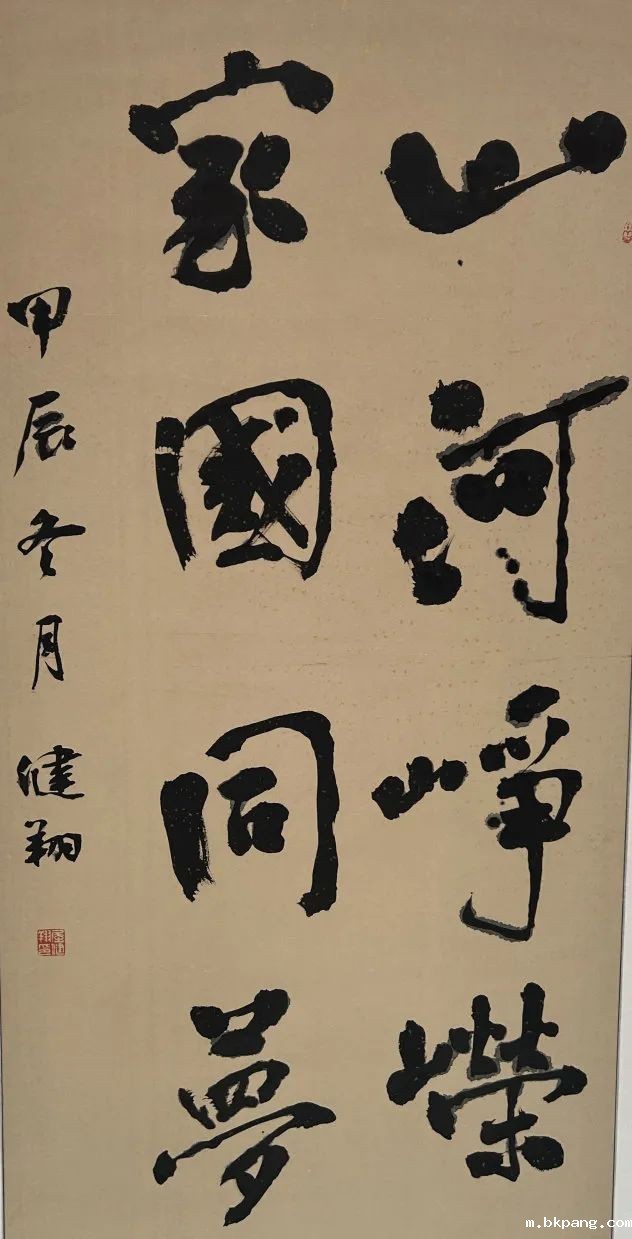 山河峥嵘
家國同夢
甲辰冬月 健翔
m.bkpang.com